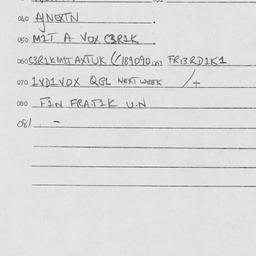 040 AJNEXTN .
050 MIT A VOX C3R1K .
060 C3R1KMIT AXTUK (/189090.057 FRI3RD1K1
070 1VD1VOX QGL NEXT WEEK /+
080 FIN FRATIK U.N
081 . -